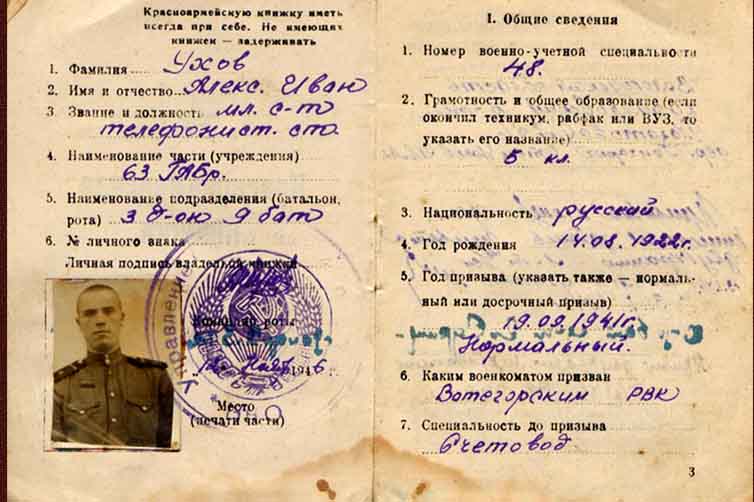 Красноармейскую книжку иметь
всегда при себе. Не имеющих
книжек — задерживать
1. Фамилия Ухов
2. Имя и отчество Алекс. Иван
3. Звание и должность мл. с-т
телефонист. ст.
4. Наименование части (учреждения)
63 ГАБр.
5. Наименование подразделения (батальон,
рота) 3 д-он 9 бат
6. № личного знака
Личная подпись владельца книжки
Управление
Командир роты
1946
Место
(печати части)
I. Общие сведения
1. Номер военно-учетной специальности
48.
2. Грамотность и общее образование (если
окончил техникум, рабфак или ВУЗ, то
указать его название)
5 кл.
3. Национальность русский
4. Год рождения 14.08.1922г.
5. Год призыва (указать также — нормаль-
ный или досрочный призыв)
19.09.1941г.
Нормальный.
6. Каким военкоматом призван
РВК
7. Специальность до призыва
Счетовод
3